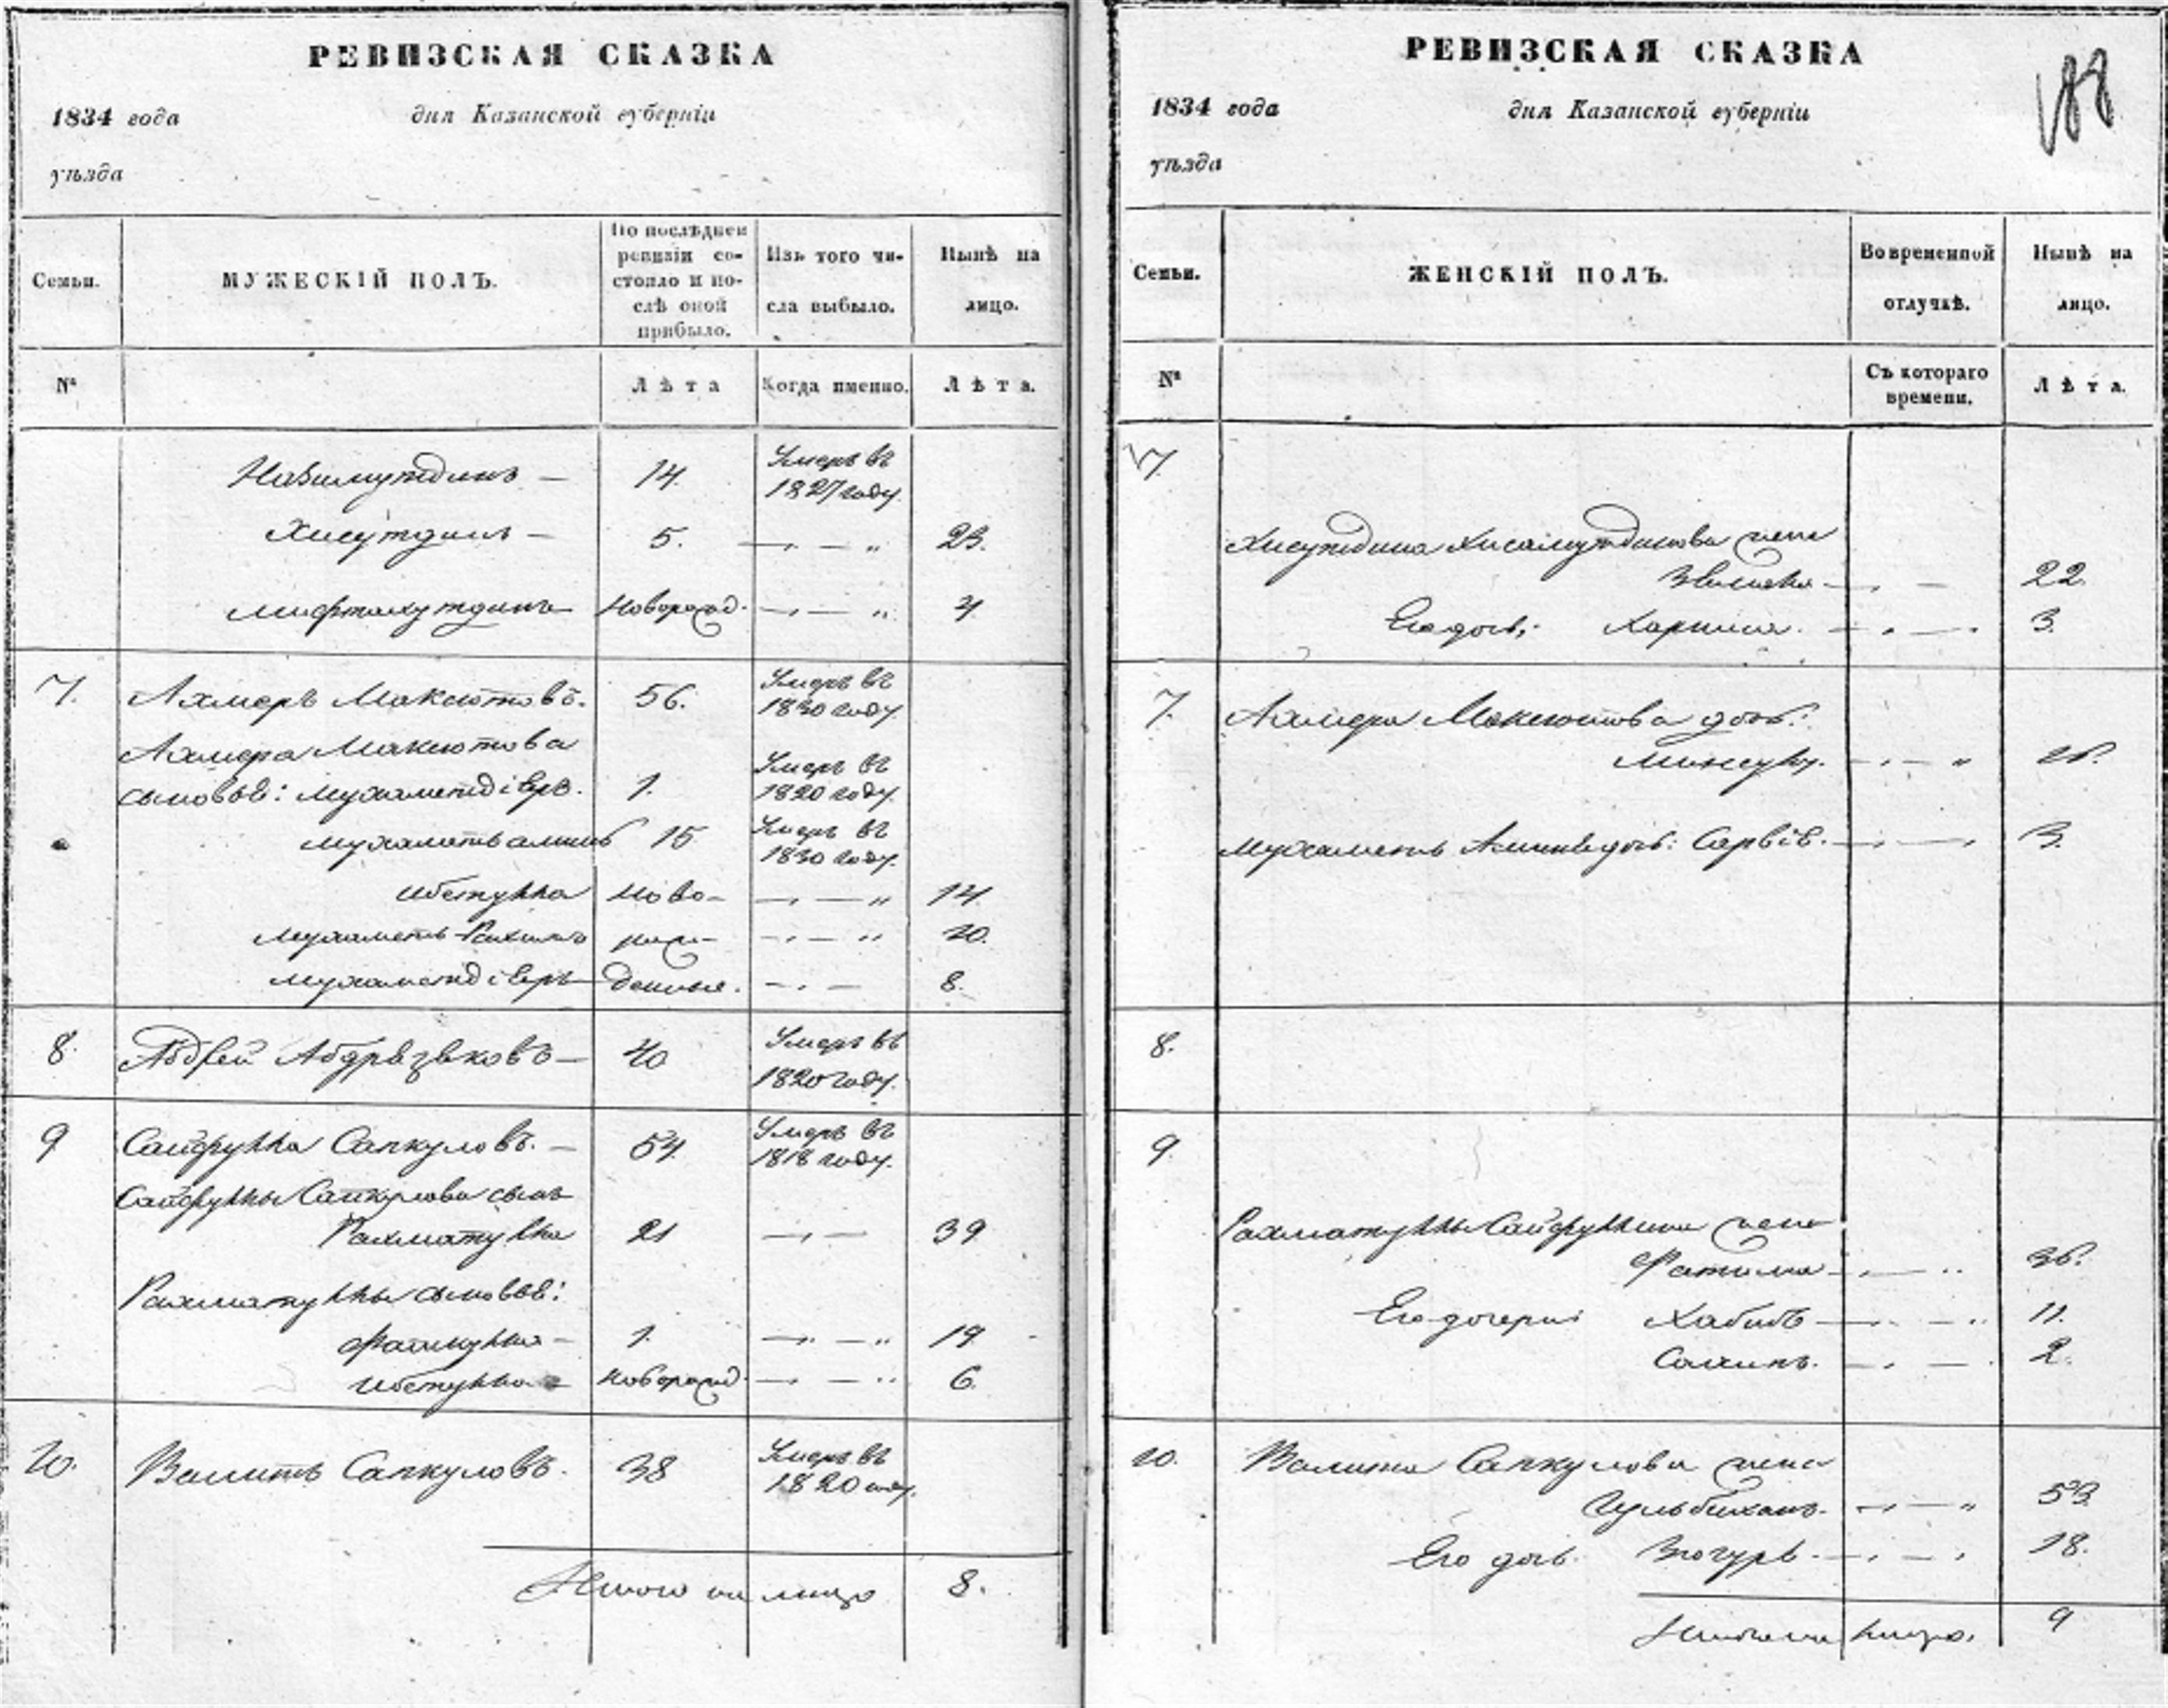 РЕВИЗСКАЯ СКАЗКА
1834 года дня Казанской губерніи
уѣзда
Семьи.
МУЖЕСКІЙ ПОЛЪ.
По послѣдней ревизіи состояло и послѣ оной прибыло.
Изъ того числа выбыло.
Нынѣ на лицо.
№
Лѣта
Когда именно.
Лѣта.
Назимутдинъ — 14. Умеръ въ 1827 году.
Хисутдинъ — 5. 23.
Мифтахутдинъ Новорожд. 4.
7. Ахмеръ Максютовъ. 56. Умеръ въ 1830 году
Ахмера Максютова
сыновья: Мухаметдіеръ. 1. Умеръ въ 1820 году.
Мухаметъ аминъ 15 Умеръ въ 1830 году.
Ибетулла Ново- 14.
Мухаметъ Рахимъ рож- 10.
Мухаметдіеръ денные. 8.
8. Абдрей Абдрязяковъ — 40 Умеръ въ 1820 году.
9 Сайфулла Сапкуловъ. — 54. Умеръ въ 1818 году.
Сайфуллы Сапкулова сынъ
Рахматулла 21 39
Рахматуллы сыновья:
Фаткулла — 1. 19
Ибетулла Новорожд. 6.
10. Валитъ Сапкуловъ. 38 Умеръ въ 1820 году.
Итого на лицо 8.
РЕВИЗСКАЯ СКАЗКА
188
1834 года дня Казанской губерніи
уѣзда
Семьи.
ЖЕНСКІЙ ПОЛЪ.
Во временной отлучкѣ.
Нынѣ на лицо.
№
Съ котораго времени.
Лѣта.
Хисутдина Хисамутдинова жена
22.
Его дочь: 3.
7. Ахмера Максютова дочь:
Мухаметъ Аминя дочь: 3.
8.
9.
Рахматуллы Сайфуллина жена
Фатима 36.
Его дочери: Хабибъ 11.
2.
10. Валита Сапкулова жена
Гульбиханъ. 53.
Его дочь 18.
Итого на лицо. 9